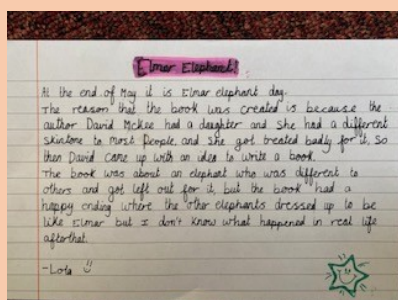 Elmar Elephant!
At the end of May it is Elmar elephant day.
The reason that the book was created is because the
author David McKee had a daughter and she had a different
skintone to most people, and she got treated badly for it, so
then David came up with an idea to write a book.
The book was about an elephant who was different to
others and got left out for it, but the book had a
happy ending where the other elephants dressed up to be
like Elmar but I don't know what happened in real life
afterthat.
-Lola